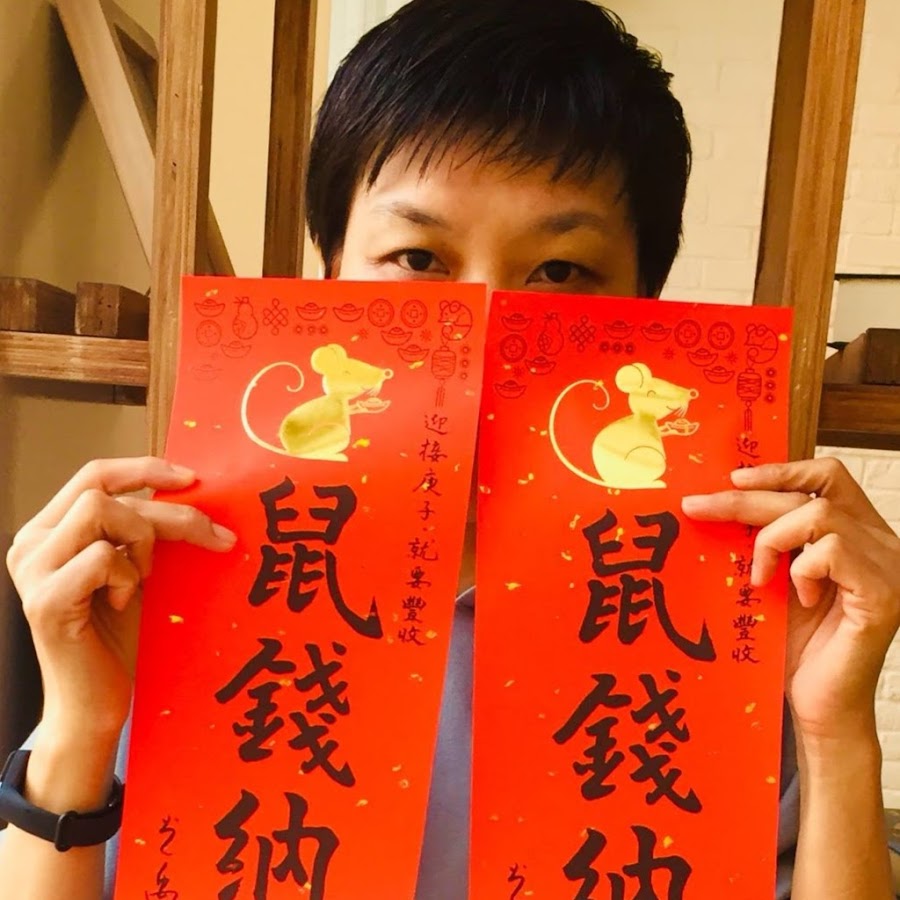 迎接庚子就要豐收
鼠錢納
迎接子就要豐收
鼠錢納